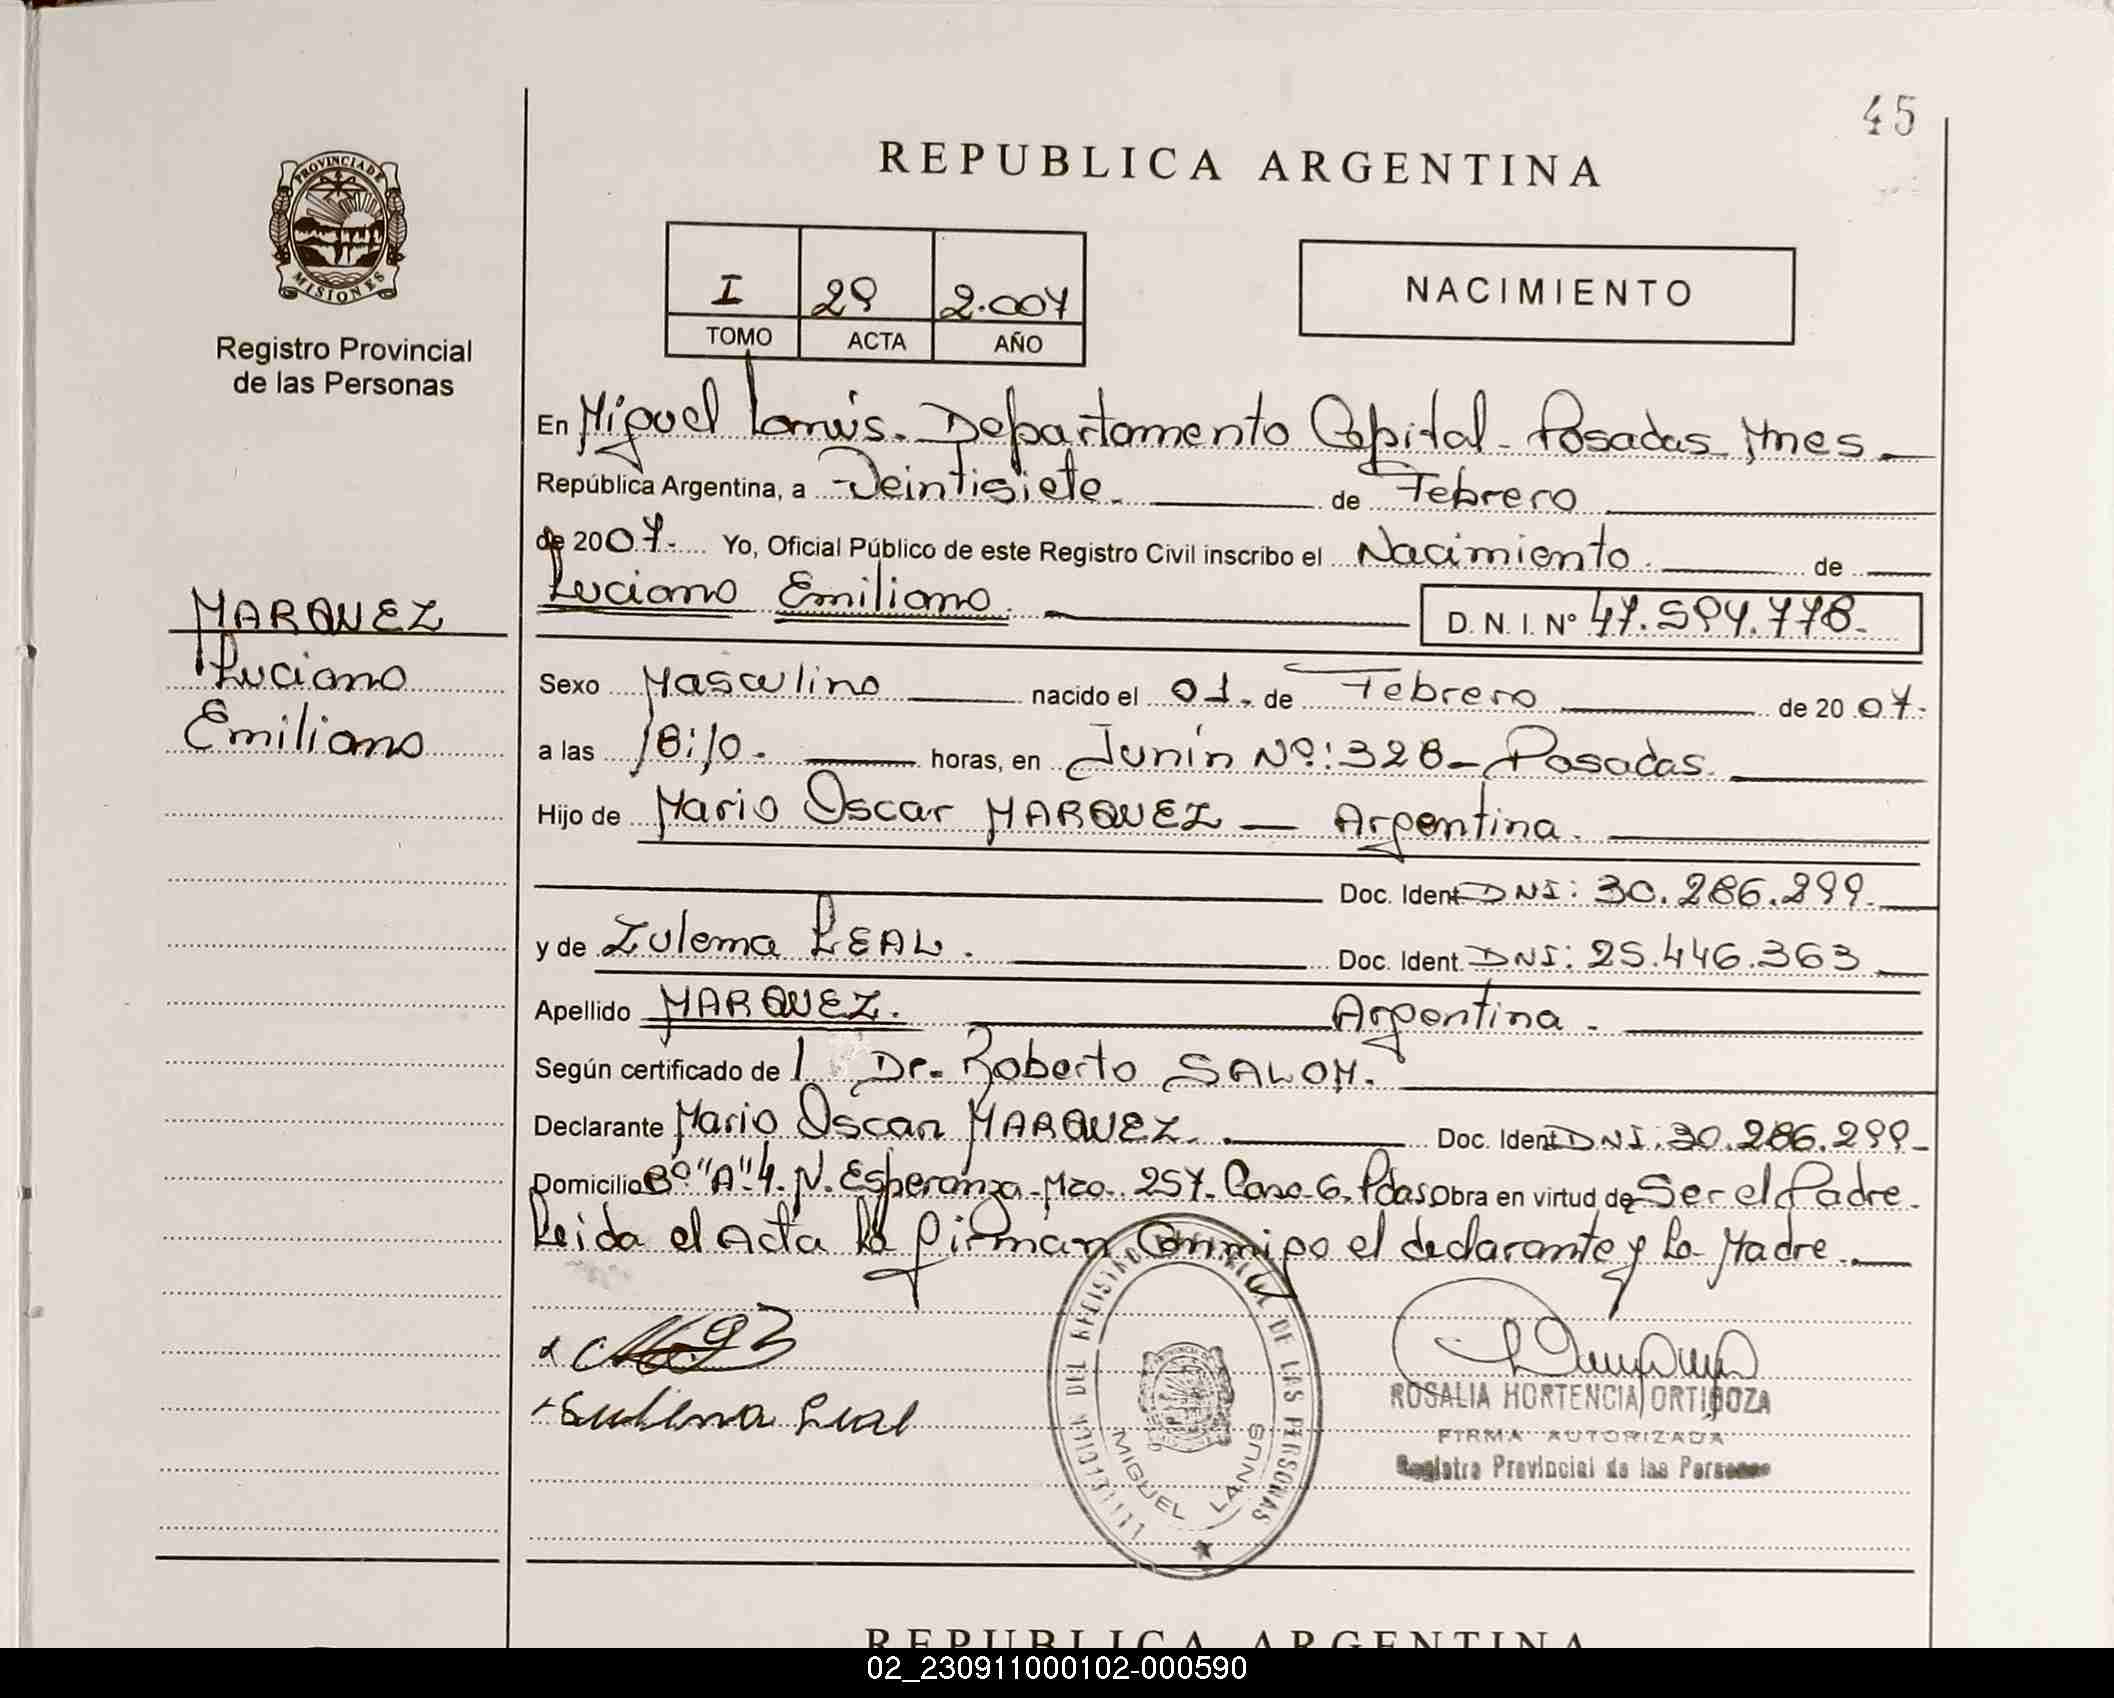 45
REPUBLICA ARGENTINA
PROVINCIA DE
MISIONES
Registro Provincial
de las Personas
I 29 2.007
TOMO ACTA AÑO
NACIMIENTO
En Miguel Lanús. Departamento Capital - Posadas Mnes
República Argentina, a Veintisiete. de Febrero
de 2007. Yo, Oficial Público de este Registro Civil inscribo el Nacimiento. de
Luciano Emiliano. D. N. I. Nº 47.594.778.
MARQUEZ
Luciano
Emiliano
Sexo Masculino nacido el 01. de Febrero de 2007.
a las 18:10. horas, en Junín Nº: 328 - Posadas.
Hijo de Mario Oscar MARQUEZ — Argentina.
Doc. Ident. DNI: 30.286.299.
y de Zulema LEAL. Doc. Ident. DNI: 25.446.363
Apellido MARQUEZ. Argentina.
Según certificado de l Dr. Roberto SALOM.
Declarante Mario Oscar MARQUEZ. Doc. Ident DNI. 30.286.299-
Domicilio Bº "A" 4. N. Esperanza - Mza. 257. Casa 6. Pdas Obra en virtud de Ser el Padre.
Leida el Acta la firman Conmigo el declarante y la Madre.
Zulema Leal
MIGUEL LANUS
DEL REGISTRO DE LAS PERSONAS
ROSALIA HORTENCIA ORTIGOZA
FIRMA AUTORIZADA
Registro Provincial de las Personas
REPUBLICA ARGENTINA
02_230911000102-000590